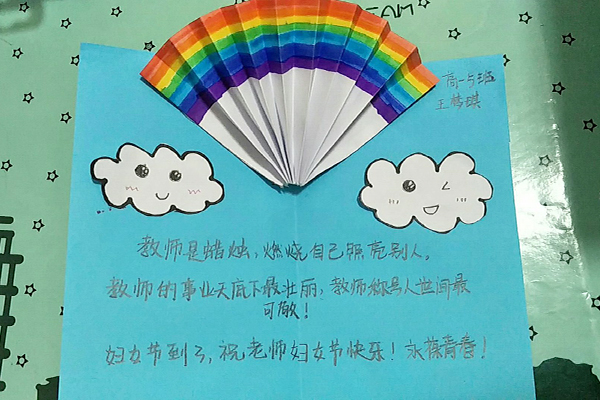 TEAM
高一5班
王梦琪
教师是蜡烛,燃烧自己照亮别人,
教师的事业天底下最壮丽,教师称号人世间最
可敬!
妇女节到了,祝老师妇女节快乐!永葆青春!